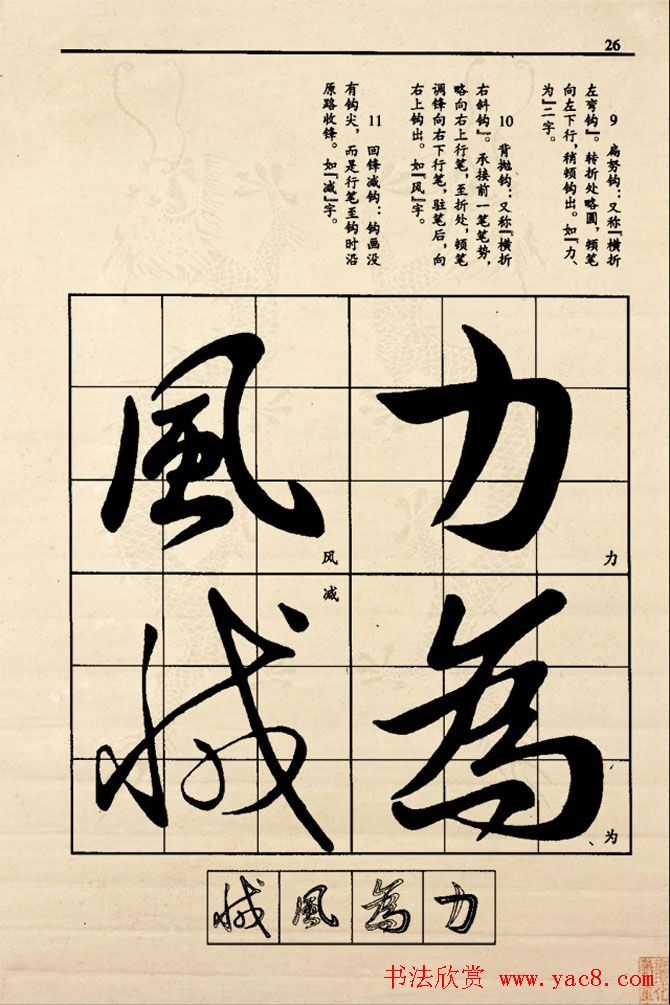 26
9 扁努钩：又称『横折
左弯钩』。转折处略圆，顿笔
向左下行，稍顿钩出。如『力、
为』二字。
10 背抛钩：又称『横折
右斜钩』。承接前一笔笔势，
略向右上行笔，至折处，顿笔
调锋向右下行笔，驻笔后，向
右上钩出。如『风』字。
11 回锋减钩：钩画没
有钩尖，而是行笔至钩时沿
原路收锋。如『减』字。
力
力
為
为
風
风
减
減
力
為
風
減
书法欣赏 www.yac8.com